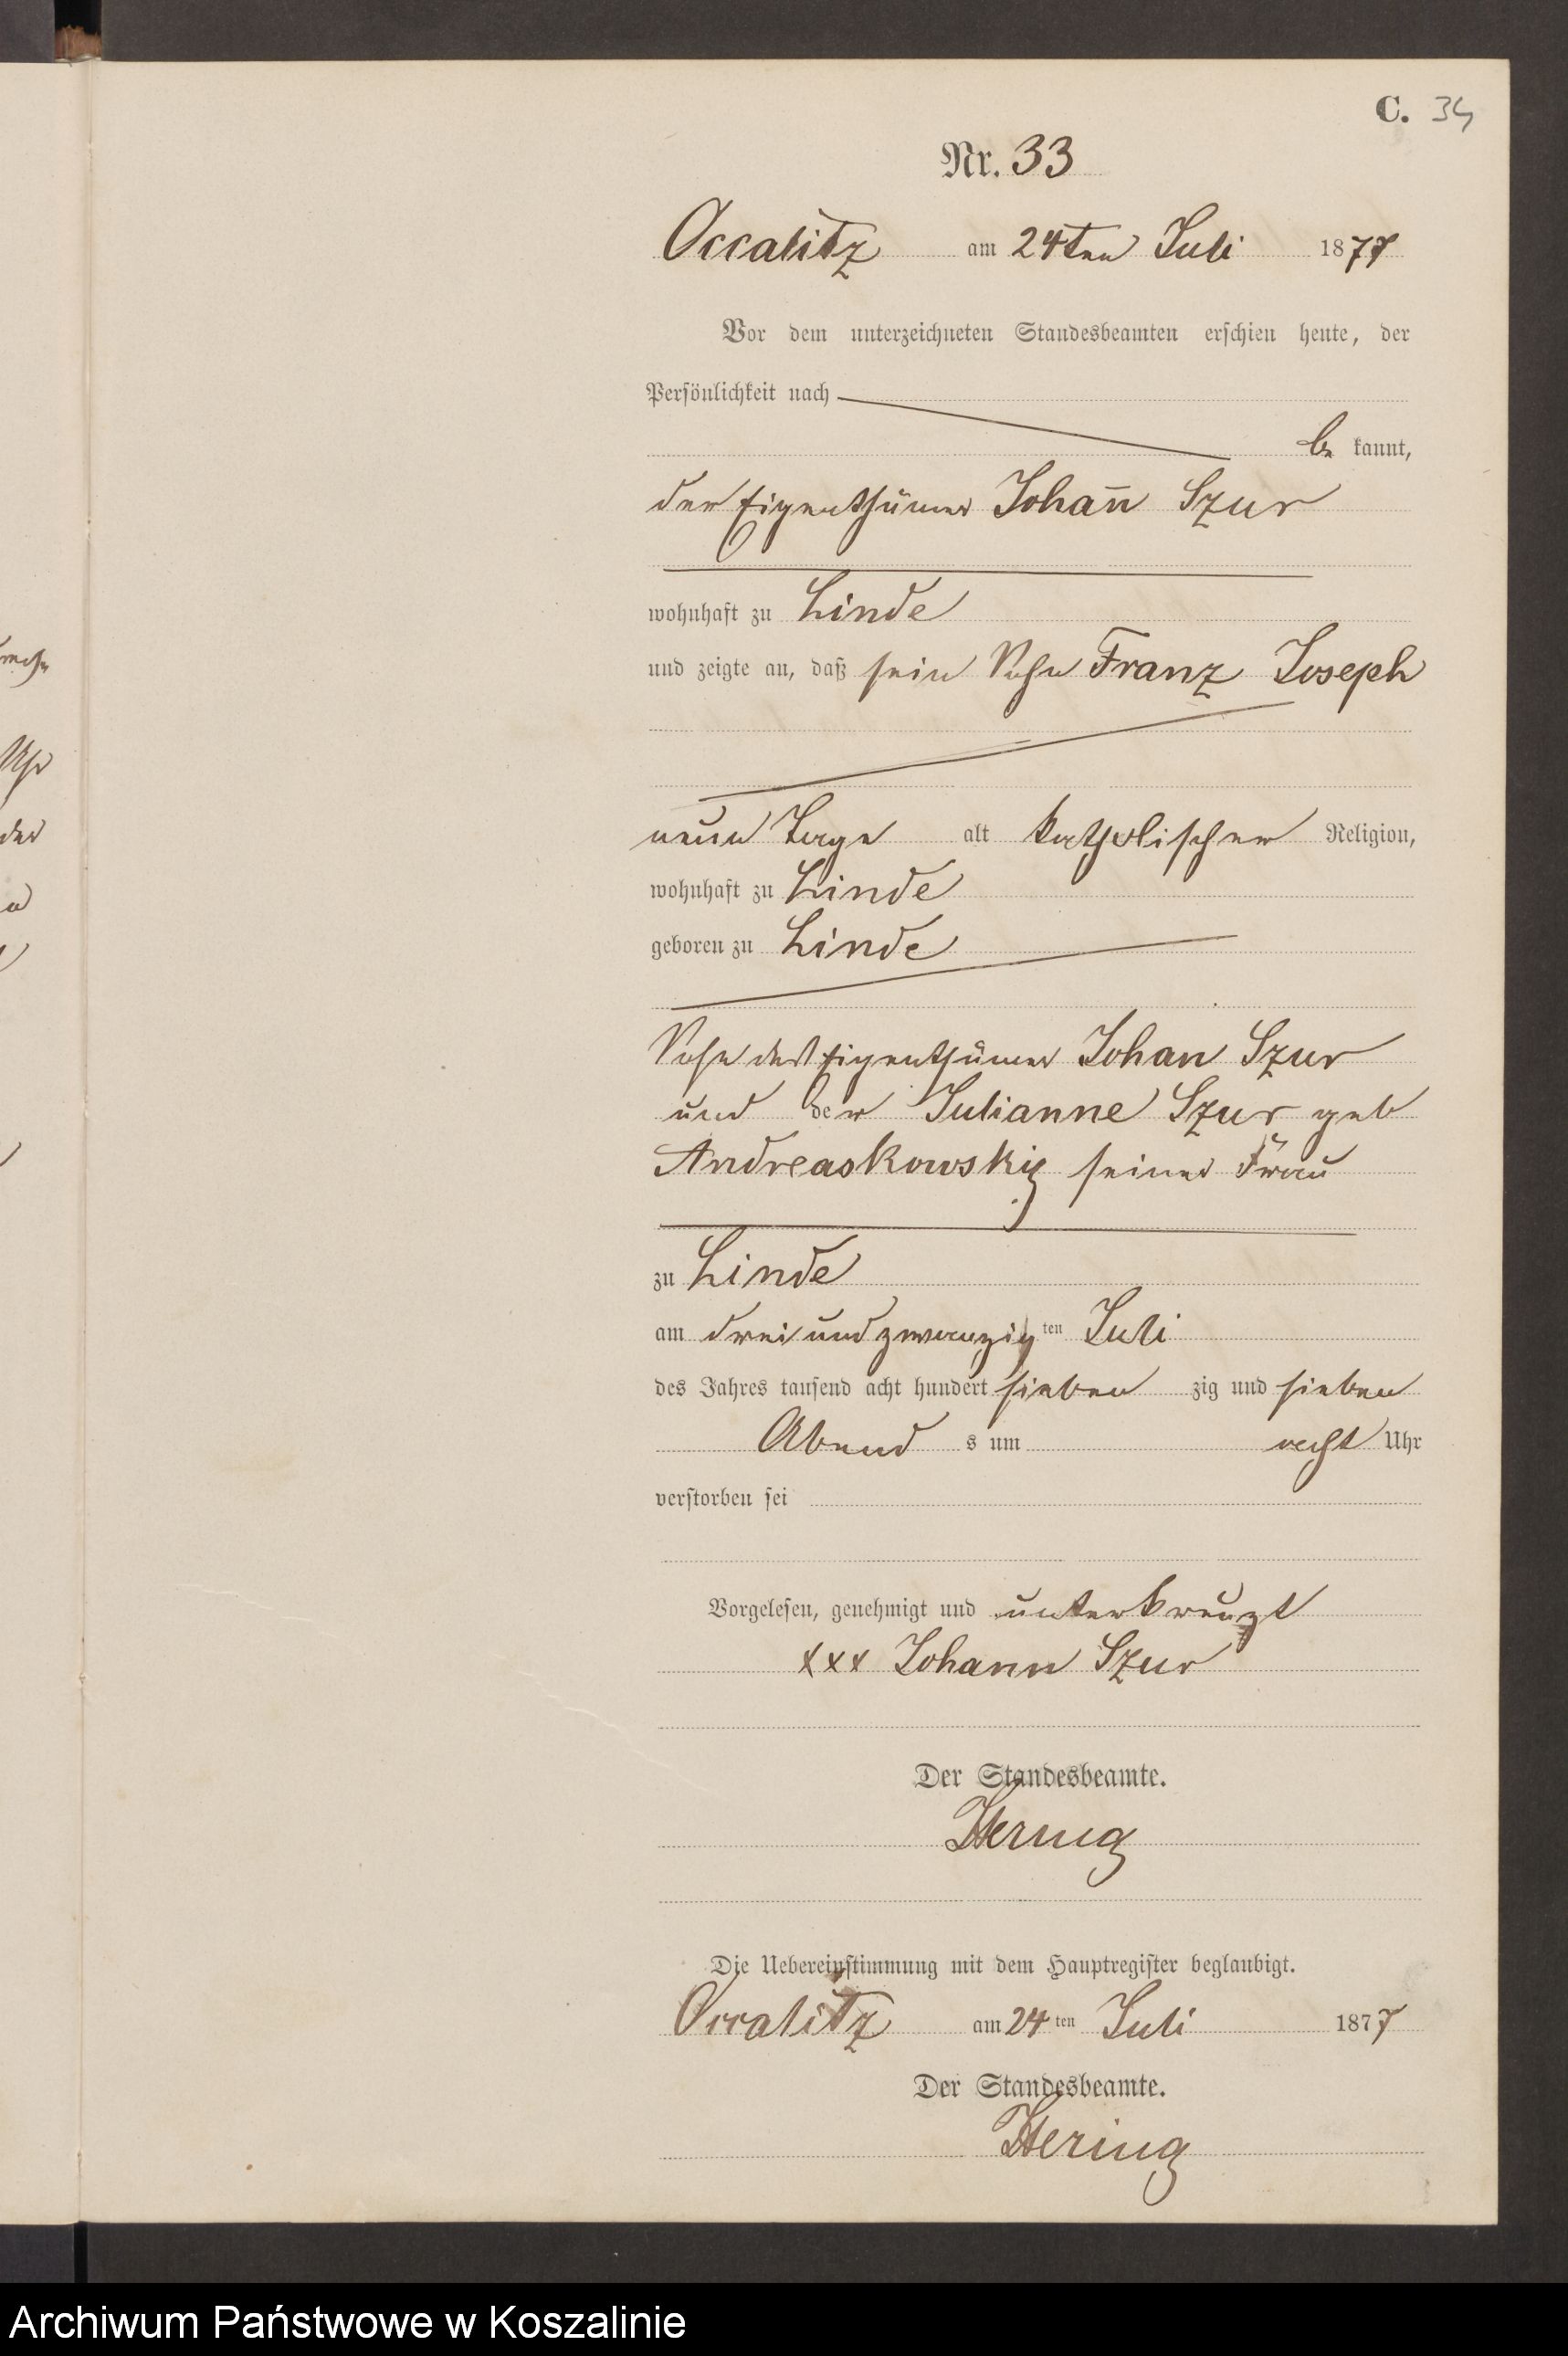 C. 34
Nr. 33
Occalitz am 24ten Juli 1877
Vor dem unterzeichneten Standesbeamten erschien heute, der
Persönlichkeit nach
be kannt,
der Eigenthümer Johan̄ Szur
wohnhaft zu Linde
und zeigte an, daß sein Sohn Franz Joseph
neun Tage alt katholischer Religion,
wohnhaft zu Linde
geboren zu Linde
Sohn des Eigenthümer Johan Szur
und der Julianne Szur geb
Andreaskowski seiner Frau
zu Linde
am drei und zwanzig ten Juli
des Jahres tausend acht hundert sieben zig und sieben
Abend s um acht Uhr
verstorben sei
Vorgelesen, genehmigt und unterkreuzt
xxx Johann Szur
Der Standesbeamte.
Hering
Die Uebereinstimmung mit dem Hauptregister beglaubigt.
Occalitz am 24 ten Juli 1877
Der Standesbeamte.
Hering
Uhr
der
Archiwum Państwowe w Koszalinie